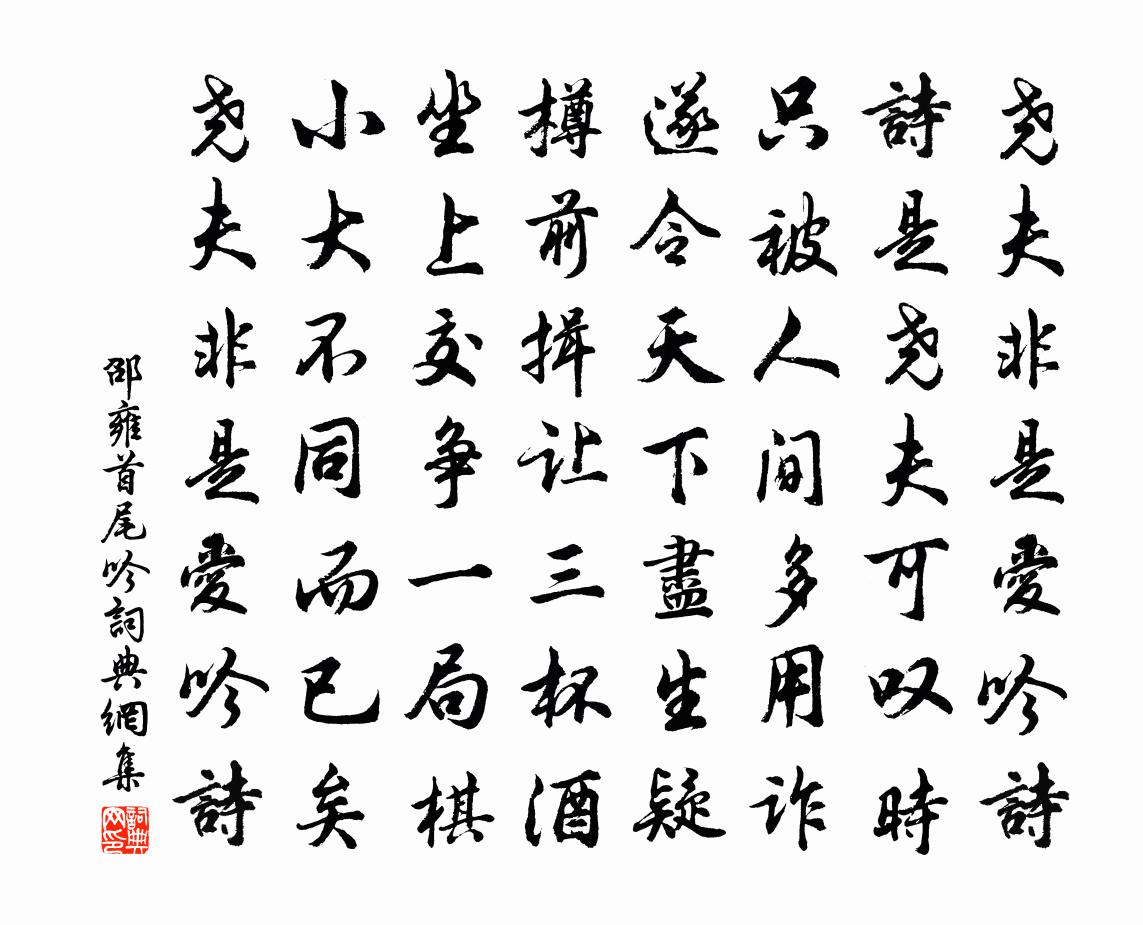 尧夫非是愛吟詩
詩是尧夫可叹時
只被人间多用诈
遂令天下盡生疑
樽前揖让三杯酒
坐上交争一局棋
小大不同而已矣
尧夫非是愛吟詩
邵雍首尾吟詞典網集
詞典
网印